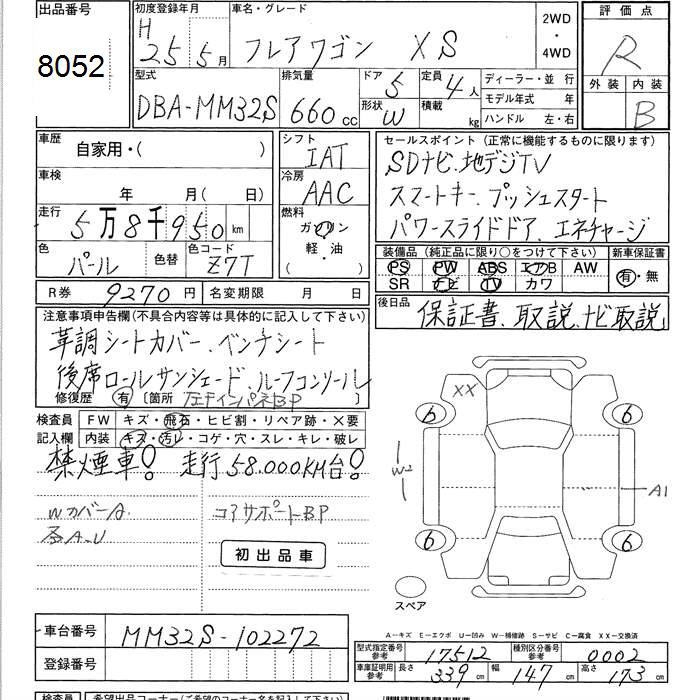 出品番号 初度登録年月 車名・グレード 2WD・4WD 評価点
8052 H 25年 5月 フレアワゴン XS R
型式 排気量 ドア 5 定員 4人 ディーラー・並行 外装 内装
DBA-MM32S 660cc 形状 W 積載 kg モデル年式 年 B
ハンドル 左・右
車歴 自家用・( ) シフト IAT セールスポイント (正常に機能するものに限ります)
車検 年 月( 日) 冷房 AAC SDナビ.地デジTV
スマートキー.プッシュスタート
走行 5万8千950km 燃料 ガソリン 軽・油 ( ) パワースライドドア.エネチャージ
色 パール 色替 色コード Z7T 装備品 (純正品に限り○をつけて下さい) 新車保証書
PS PW ABS エアB AW 有・無
R券 9270円 名変期限 月 日 SR ナビ TV カワ
注意事項申告欄(不具合内容等は具体的に記入して下さい) 後日品 保証書.取説.ナビ取説
革調シートカバー.ベンチシート
後席ロールサンシェード.ルーフコンソール
修復歴 有 [箇所
検査員 FW キズ・飛石・ヒビ割・リペア跡・×要
記入欄 内装 キズ・汚レ・コゲ・穴・スレ・キレ・破レ
禁煙車! 走行58.000KM台!
WカバーA. コアサポートBP
A.U
初出品車
XX
6 6
W2 A1
6 6
スペア
A-キズ E-エクボ U-凹み W-補修跡 S-サビ C-腐食 XX-交換済
車台番号 MM32S-102272
型式指定番号 参考 17512 種別区分番号 参考 0002
登録番号 車庫証明用 参考 長さ 339cm 幅 147cm 高さ 173cm
検査員 希望出品コーナー(ご希望のコーナー名を記入